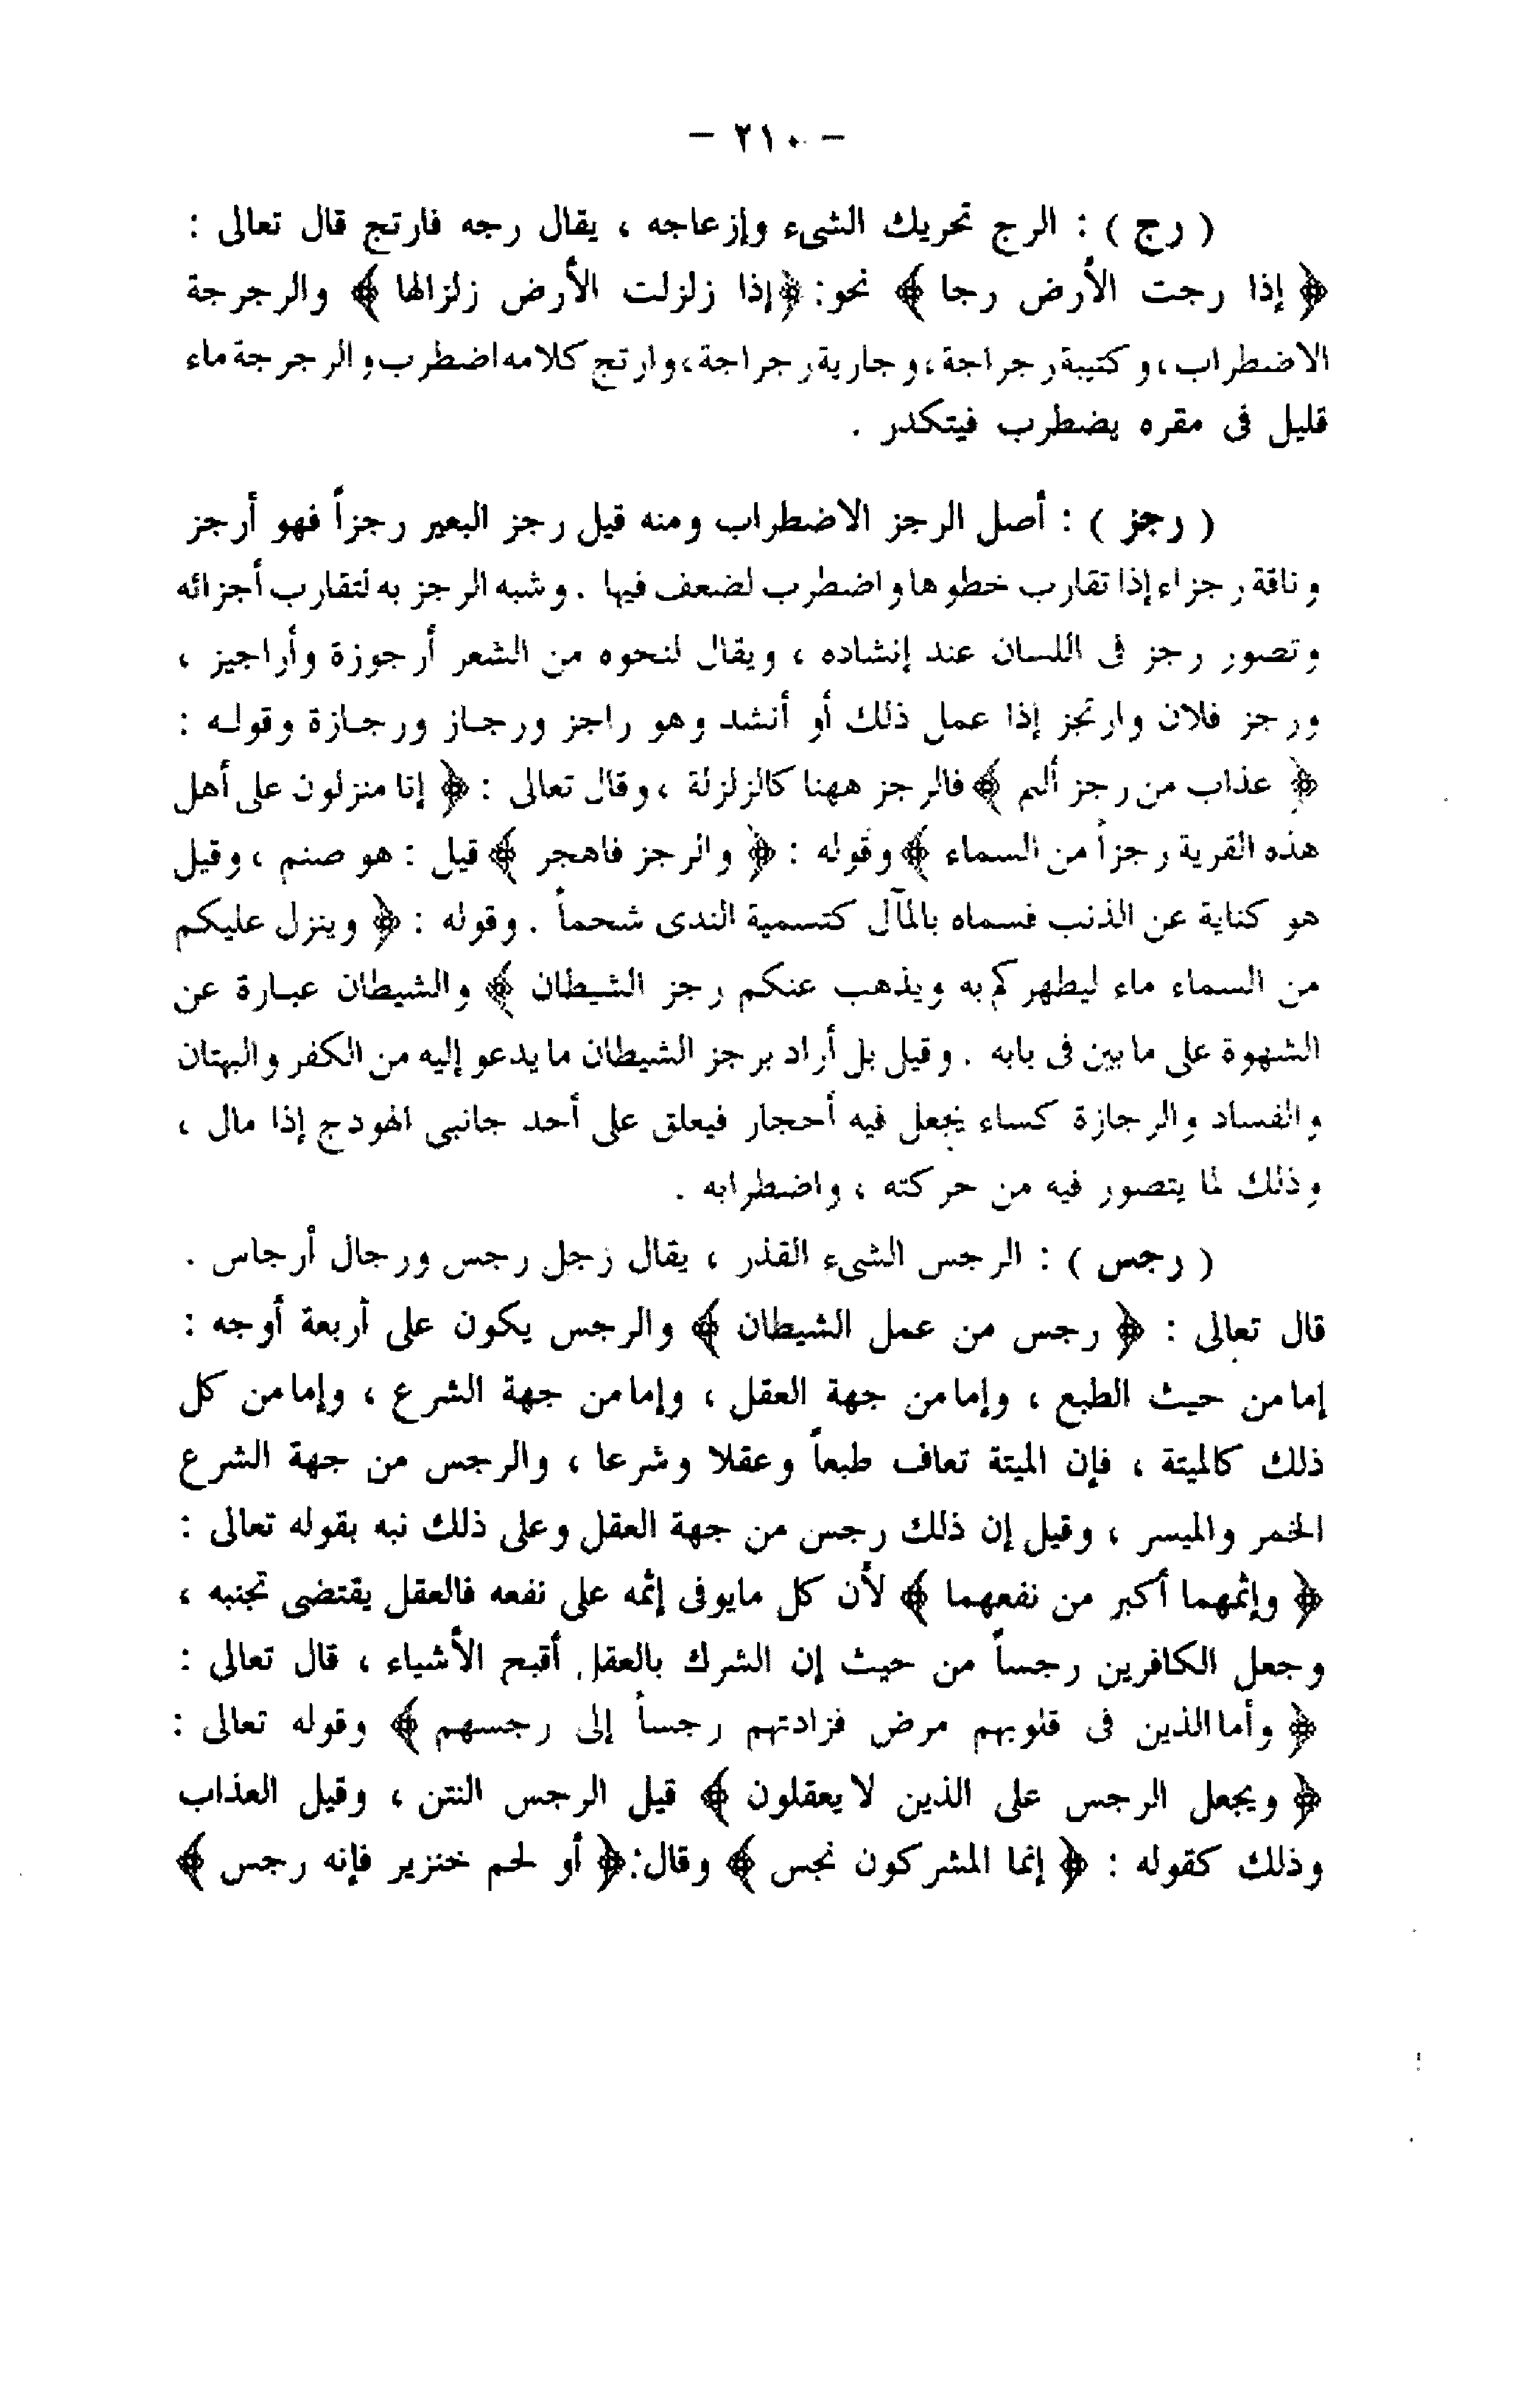 – ٢١٠ –
( رج ) : الرج تحريك الشىء وإزعاجه ، يقال رجه فارتج قال تعالى :
﴿ إذا رجت الأرض رجا ﴾ نحو: ﴿إذا زلزلت الأرض زلزالها ﴾ والرجرجة
الاضطراب، وكتيبة رجراجة، وجارية رجراجة، وارتج كلامه اضطرب والرجرجة ماء
قليل فى مقره يضطرب فيتكدر .
( رجز ) : أصل الرجز الاضطراب ومنه قيل رجز البعير رجزاً فهو أرجز
وناقة رجزاء إذا تقارب خطوها واضطرب لضعف فيها . وشبه الرجز به لتقارب أجزائه
وتصور رجز فى اللسان عند إنشاده ، ويقال لنحوه من الشعر أرجوزة وأراجيز ،
ورجز فلان وارتجز إذا عمل ذلك أو أنشد وهو راجز ورجاز ورجازة وقوله :
﴿ عذاب من رجز أليم ﴾ فالرجز ههنا كالزلزلة ، وقال تعالى : ﴿ إنا منزلون على أهل
هذه القرية رجزاً من السماء ﴾ وقوله : ﴿ والرجز فاهجر ﴾ قيل : هو صنم ، وقيل
هو كناية عن الذنب فسماه بالمآل كتسمية الندى شحماً . وقوله : ﴿ وينزل عليكم
من السماء ماء ليطهركم به ويذهب عنكم رجز الشيطان ﴾ والشيطان عبارة عن
الشهوة على ما بين فى بابه . وقيل بل أراد برجز الشيطان ما يدعو إليه من الكفر والبهتان
والفساد والرجازة كساء يجعل فيه أحجار فيعلق على أحد جانبى الهودج إذا مال ،
وذلك لما يتصور فيه من حركته ، واضطرابه .
( رجس ) : الرجس الشىء القذر ، يقال رجل رجس ورجال أرجاس .
قال تعالى : ﴿ رجس من عمل الشيطان ﴾ والرجس يكون على أربعة أوجه :
إما من حيث الطبع ، وإما من جهة العقل ، وإما من جهة الشرع ، وإما من كل
ذلك كالميتة ، فإن الميتة تعاف طبعاً وعقلا وشرعا ، والرجس من جهة الشرع
الخمر والميسر ، وقيل إن ذلك رجس من جهة العقل وعلى ذلك نبه بقوله تعالى :
﴿ وإثمهما أكبر من نفعهما ﴾ لأن كل مايوفى إثمه على نفعه فالعقل يقتضى تجنبه ،
وجعل الكافرين رجساً من حيث إن الشرك بالعقل أقبح الأشياء ، قال تعالى :
﴿ وأما الذين فى قلوبهم مرض فزادتهم رجساً إلى رجسهم ﴾ وقوله تعالى :
﴿ ويجعل الرجس على الذين لا يعقلون ﴾ قيل الرجس النتن ، وقيل العذاب
وذلك كقوله : ﴿ إنما المشركون نجس ﴾ وقال: ﴿ أو لحم خنزير فإنه رجس ﴾